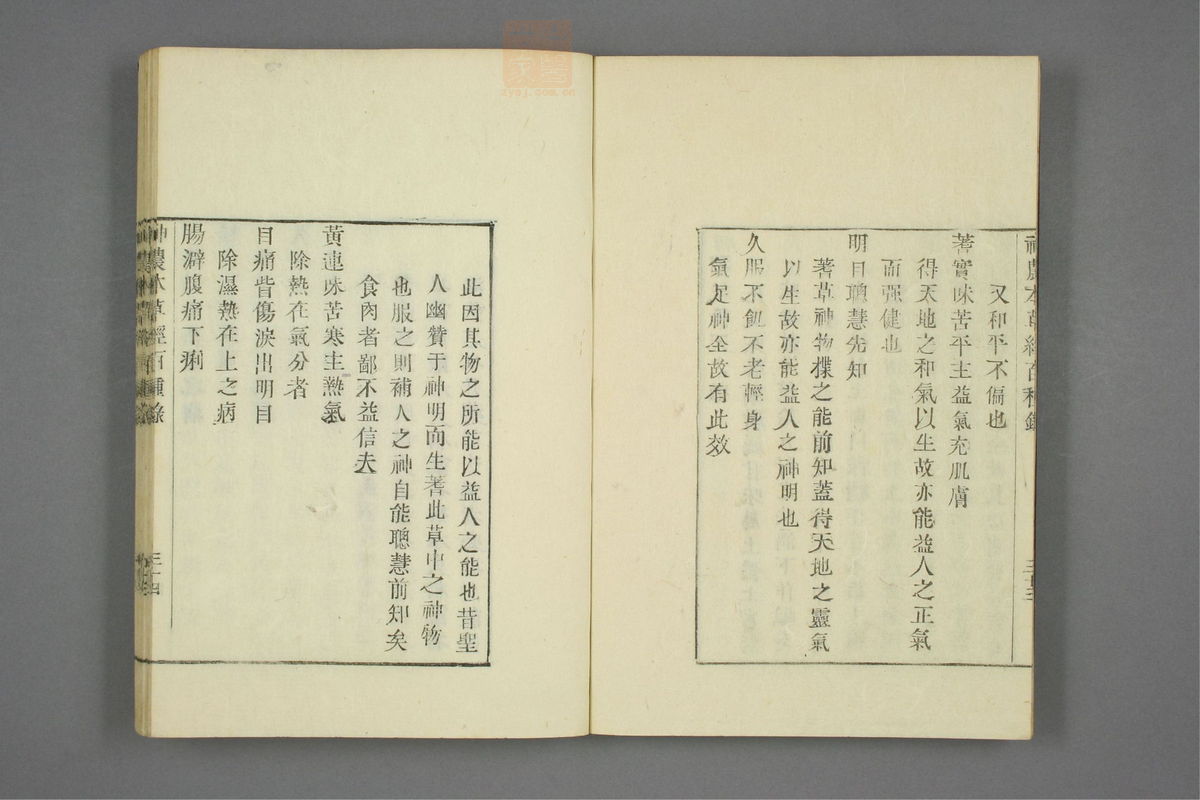 神農本草經百種錄
又和平不偏也
蓍實味苦平主益氣充肌膚
得天地之和氣以生故亦能益人之正氣
而强健也
明目聰慧先知
蓍草神物揲之能前知蓋得天地之靈氣
以生故亦能益人之神明也
久服不飢不老輕身
氣足神全故有此效
此因其物之所能以益人之能也昔聖
人幽贊于神明而生蓍此草中之神物
也服之則補人之神自能聰慧前知矣
食肉者鄙不益信夫
黃連味苦寒主熱氣
除熱在氣分者
目痛眥傷淚出明目
除濕熱在上之病
腸澼腹痛下痢
神農本草經百種錄
三十四
zysj.com.cn